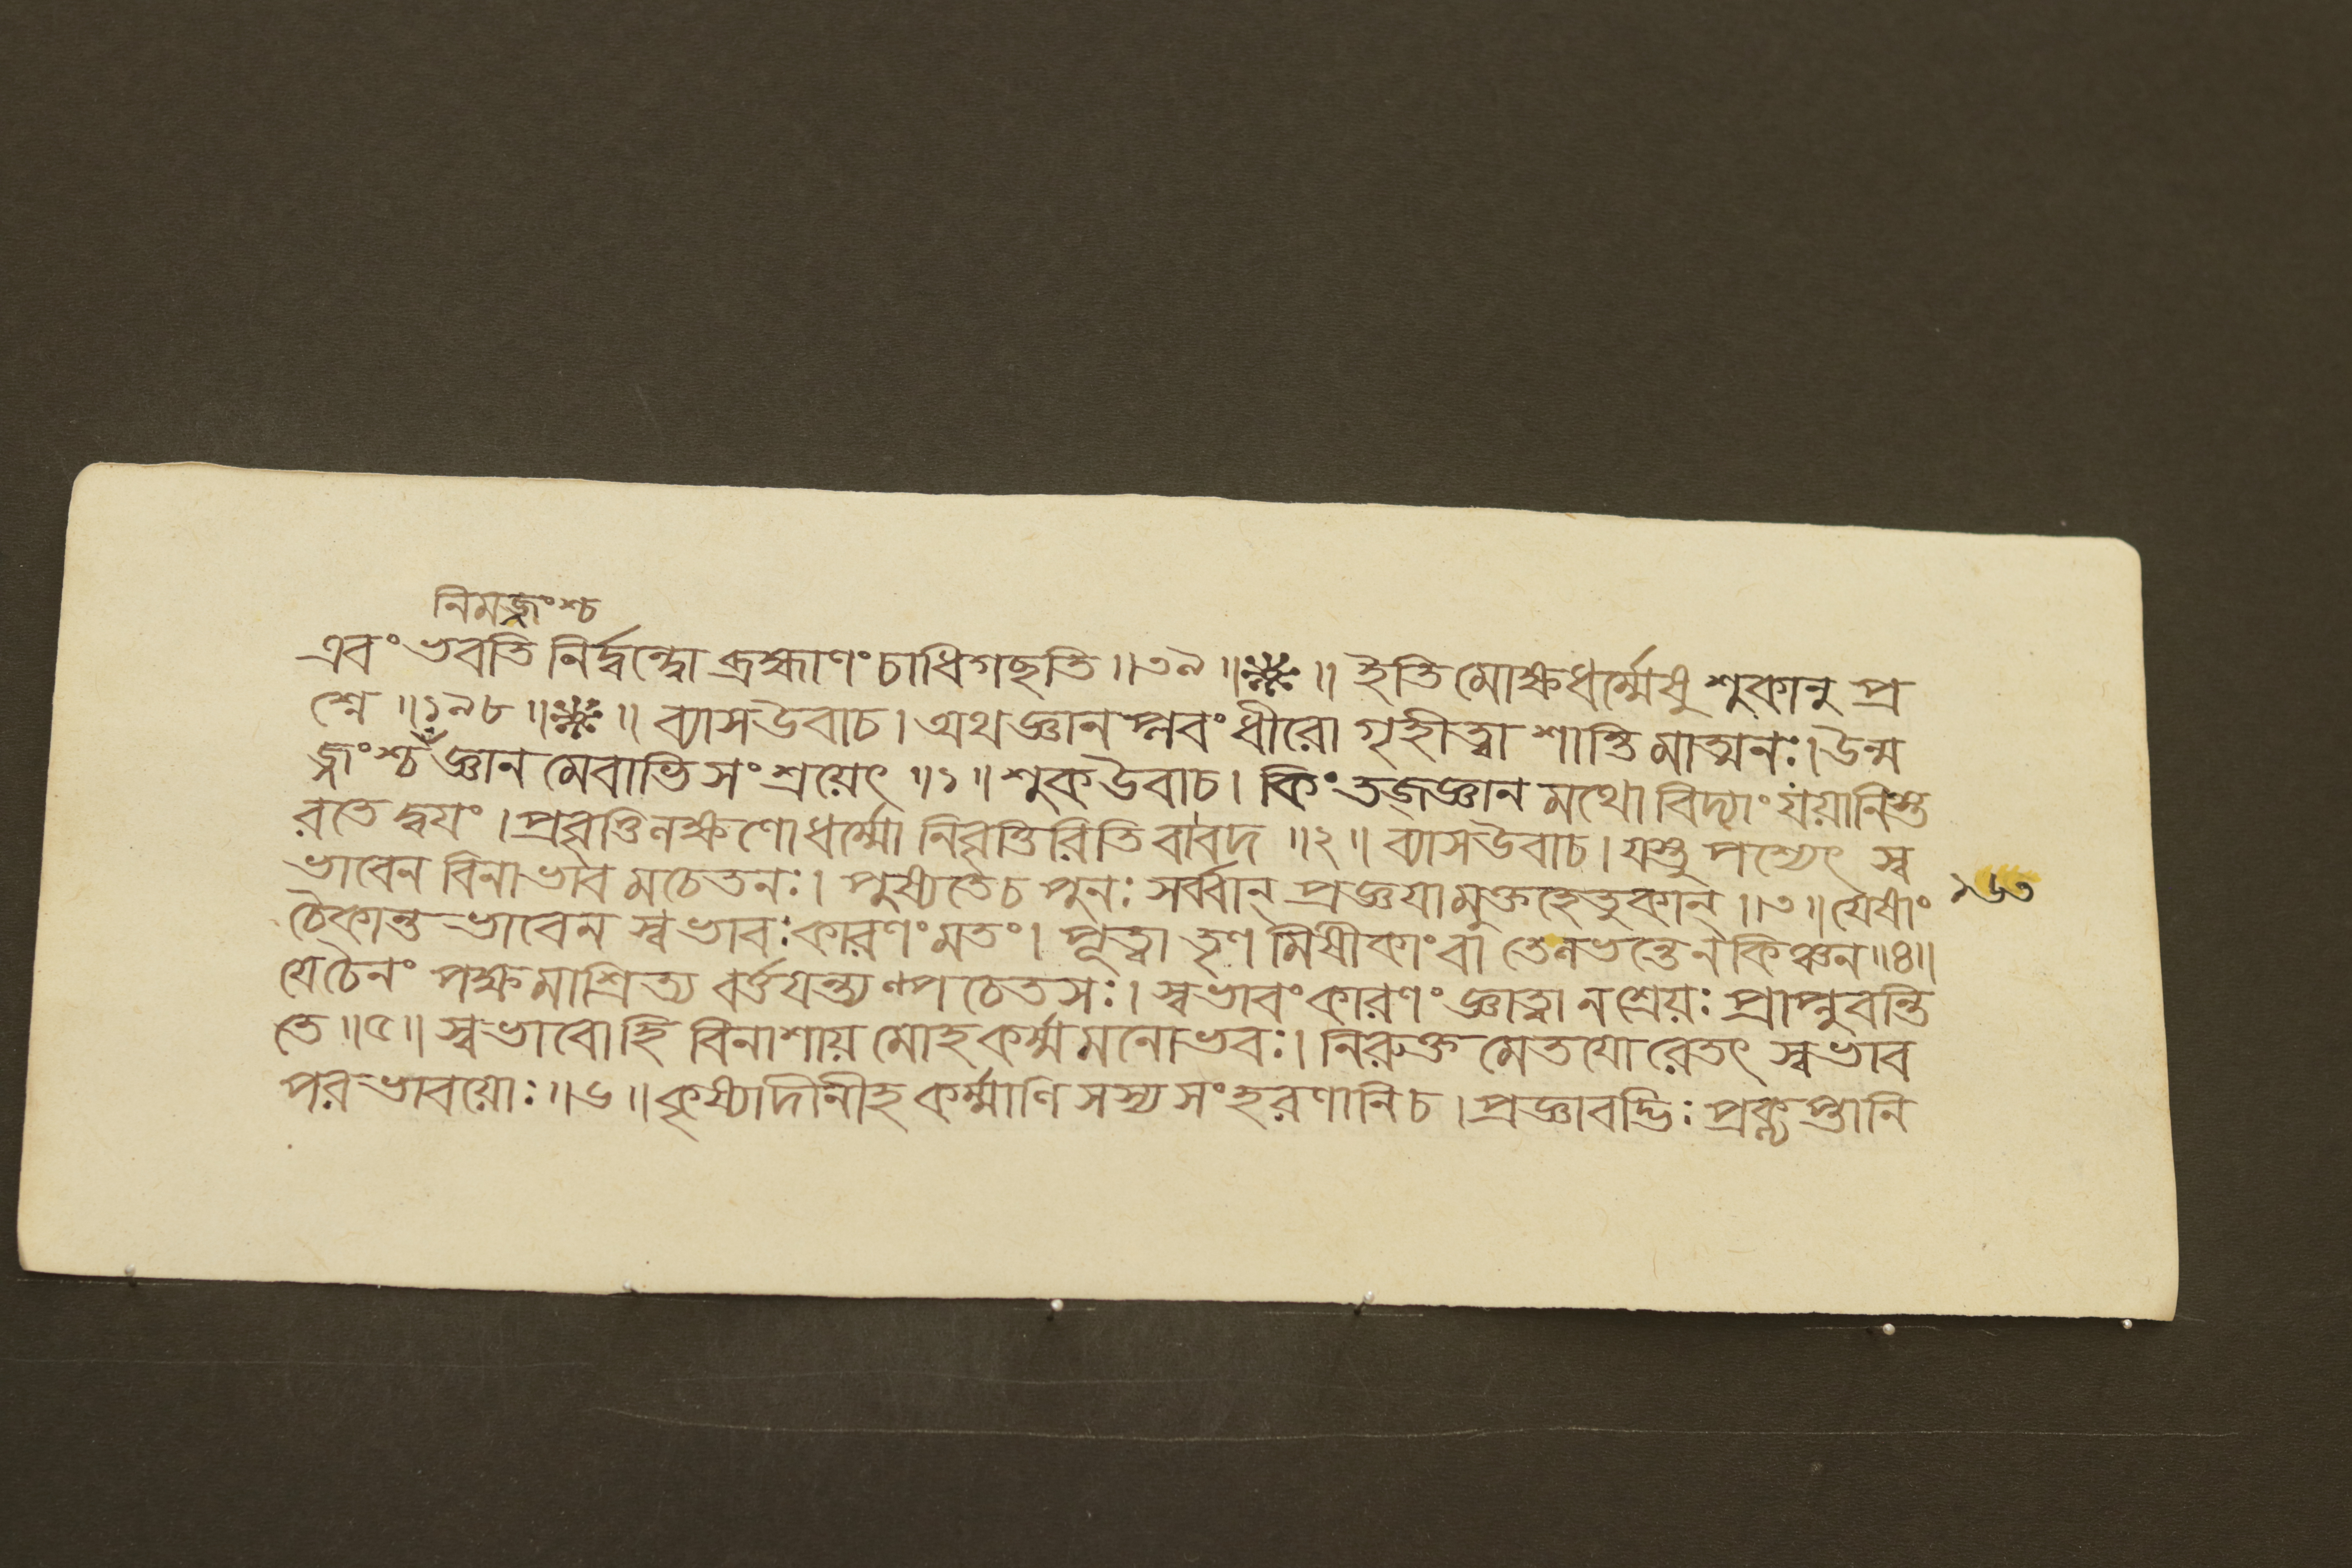 নিমজ্জংশ্চ
এবং ভবতি নির্দ্বন্দ্বো ব্রহ্মাণং চাধিগছতি ॥৩৯॥ ❋ ॥ ইতি মোক্ষধর্ম্মেষু শুকানু প্র
শ্নে ॥১৯৮॥ ❋ ॥ ব্যাসউবাচ। অথ জ্ঞান প্লবং ধীরো গৃহীত্বা শান্তি মাত্মনঃ। উন্ম
জ্জংশ্চ জ্ঞান মেবাভি সংশ্রয়েৎ ॥১॥ শুকউবাচ। কিং তজ্জ্ঞান মথো বিদ্যাং যয়ানিস্ত
রতে দ্বয়ং। প্রবৃত্তিলক্ষণো ধর্ম্মো নিবৃত্তিরিতি বাবদ ॥২॥ ব্যাসউবাচ। যস্তু পশ্যেৎ স্ব
ভাবেন বিনাভাব মচেতনঃ। পুষ্যতেচ পুনঃ সর্ব্বান্ প্রজ্ঞয়ামুক্তহেতুকান্ ॥৩॥ যেষাং
চৈকান্ত ভাবেন স্বভাবঃ কারণং মতং। পূত্বা তৃণ মিষীকাং বা তেনভন্তেন কিঞ্চন ॥৪॥
যেচৈনং পক্ষমাশ্রিত্য বর্ত্তয়ন্ত্যল্পচেতসঃ। স্বভাবং কারণং জ্ঞাত্বা নশ্রেয়ঃ প্রাপ্নুবন্তি
তে ॥৫॥ স্বভাবোহি বিনাশায় মোহকর্ম্ম মনোভবঃ। নিরুক্ত মেতয়ো রেতৎ স্বভাব
পরভাবয়োঃ ॥৬॥ কৃষ্যাদীনীহ কর্ম্মাণি সস্য সংহরণানিচ। প্রজ্ঞাবদ্ভিঃ প্রকৢপ্তানি
১৬৩